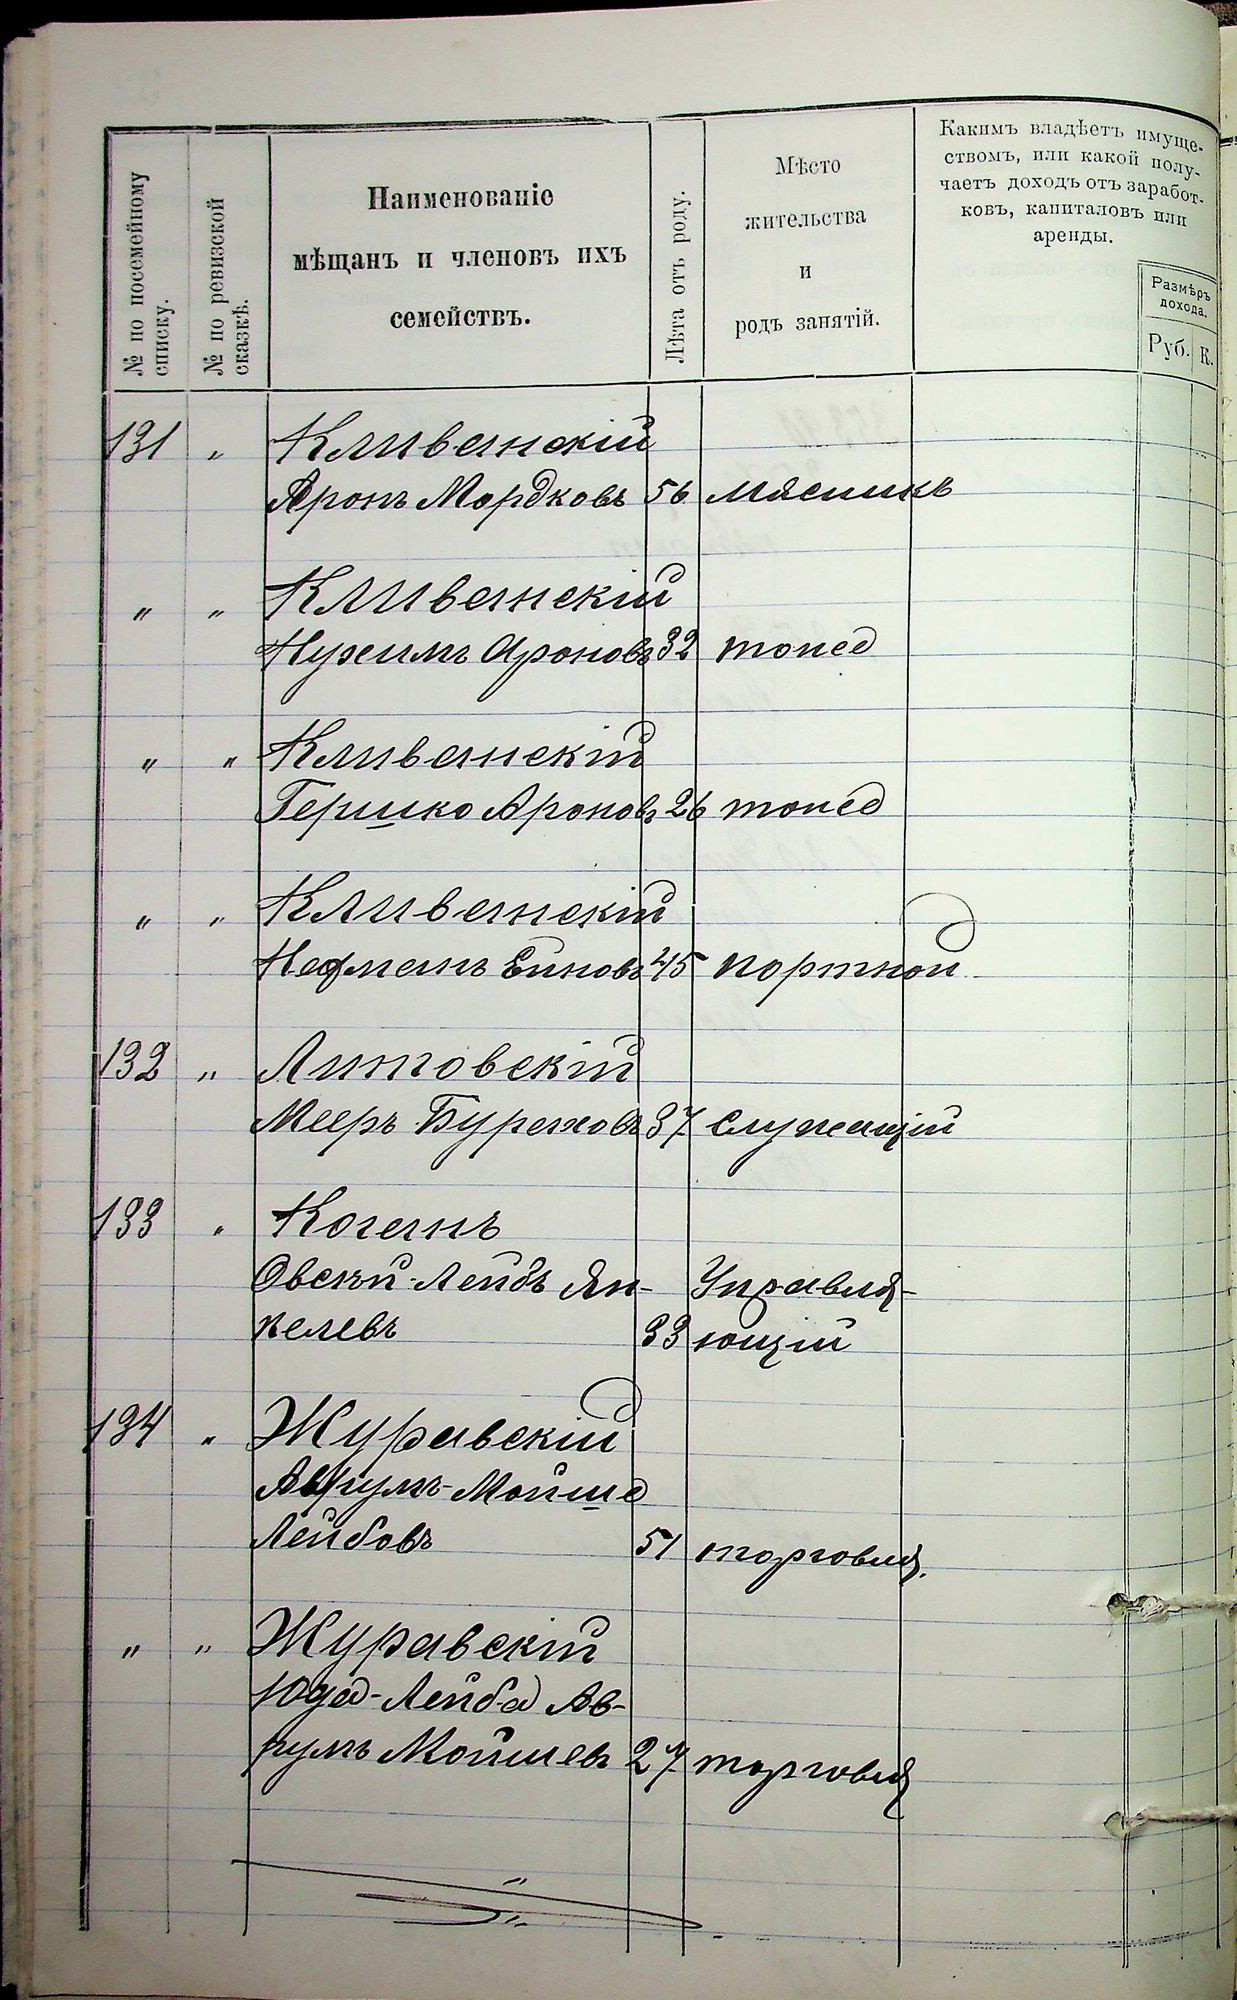 № по посемейному
списку.
№ по ревизской
сказкѣ.
Наименованіе
мѣщанъ и членовъ ихъ
семействъ.
Лѣта отъ роду.
Мѣсто
жительства
и
родъ занятій.
Какимъ владѣетъ имуще-
ствомъ, или какой полу-
чаетъ доходъ отъ заработ-
ковъ, капиталовъ или
аренды.
Размѣръ
дохода.
Руб. К.
131 " Кливанскій
Аронъ Мордковъ 56 мясникъ
" " Кливанскій
Нухимъ Ароновъ 32 тоже
" " Кливанскій
Гершко Ароновъ 26 тоже
" " Кливанскій
45 портной
132 " Литовскій
Мееръ Бураховъ 37 служащій
133 " Коганъ
Овсѣй-Лейбъ Ян- Управля-
келевъ 33 ющій
134 " Журавскій
Аврумъ-Мойше
Лейбовъ 51 торговля.
" " Журавскій
Юда-Лейба Ав-
румъ Мойшев 27 торговля